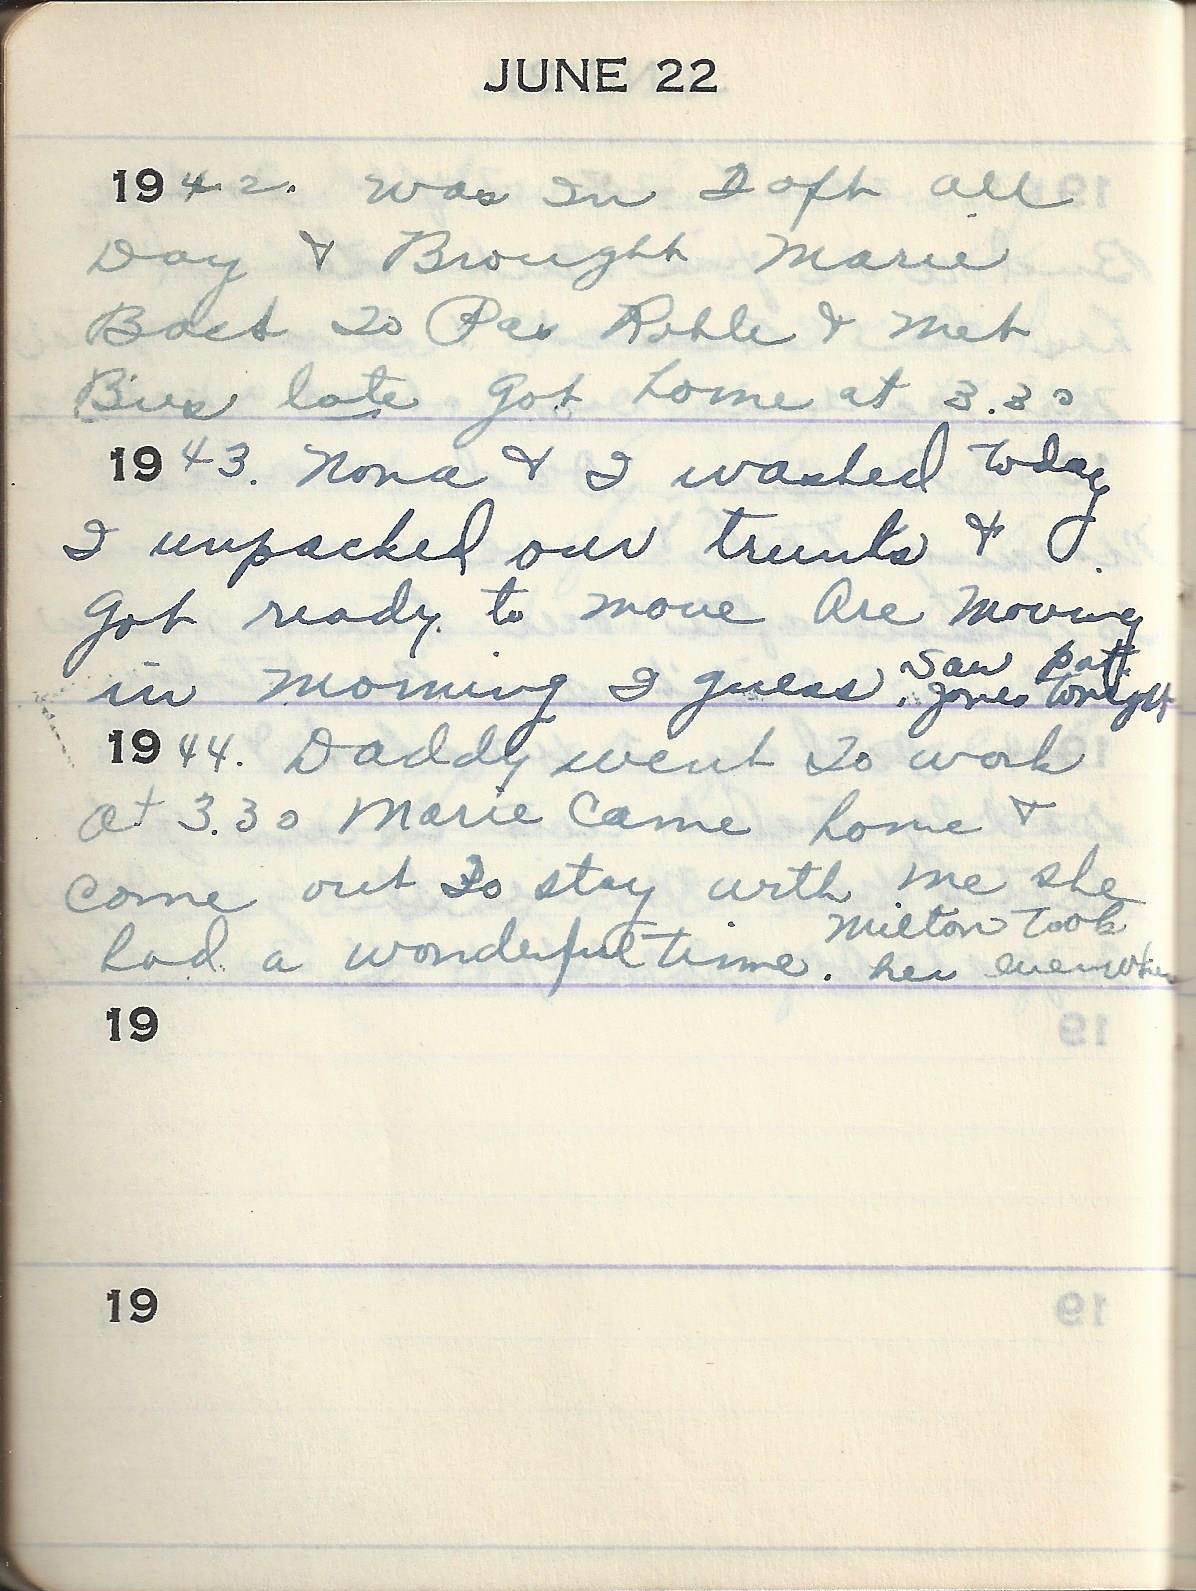 JUNE 22
1942. Was In Taft all
Day & Brought Marie
Back To Pas Roble & Met
Bus late Got home at 3.30
1943. Nona & I washed today
I unpacked our trunks &
Got ready to move Are Moving
in morning I guess. Saw Pat
Jones tonight
1944. Daddy went To work
at 3.30 Marie Came home &
Come out To stay with me she
had a wonderful time. Milton Took
her everywhere
19
19